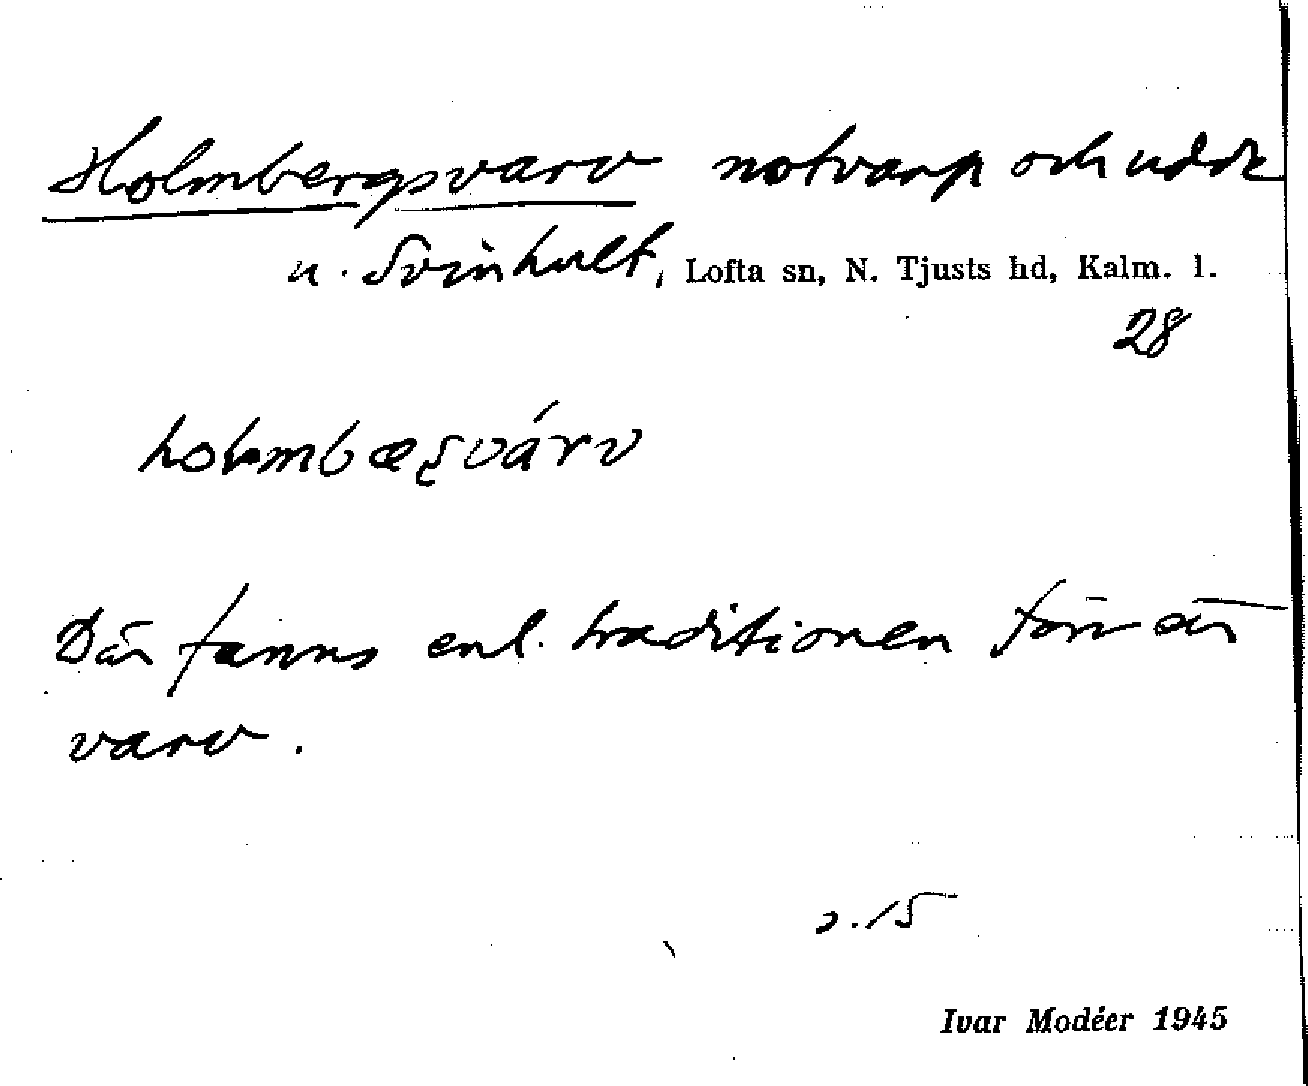 Holmbergsvarv notvarp och udde
u. Svinhult, Lofta sn, N. Tjusts hd, Kalm. l.
28
holmbæʂvárv
Där fanns enl. traditionen förr ett
varv.
s. 15
Ivar Modéer 1945